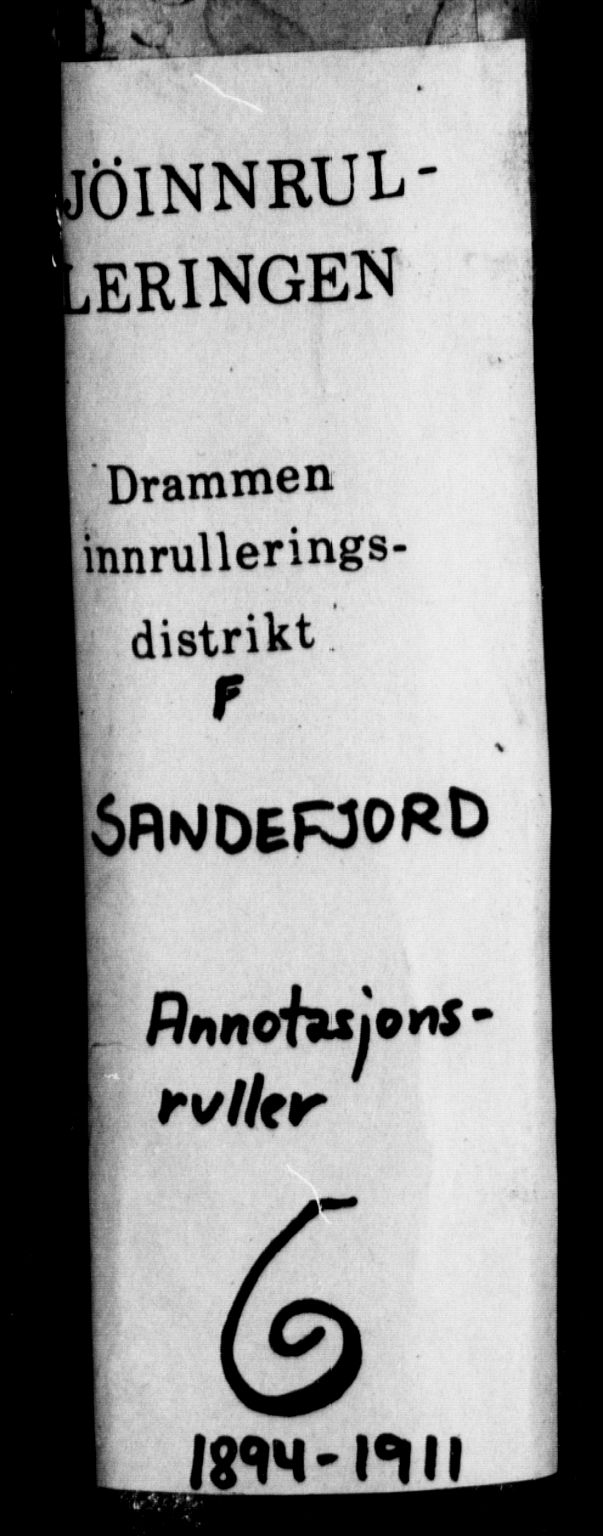 JÖINNRUL-
LERINGEN
Drammen
innrullerings-
distrikt
F
SANDEFJORD
Annotasjons-
ruller
6
1894-1911